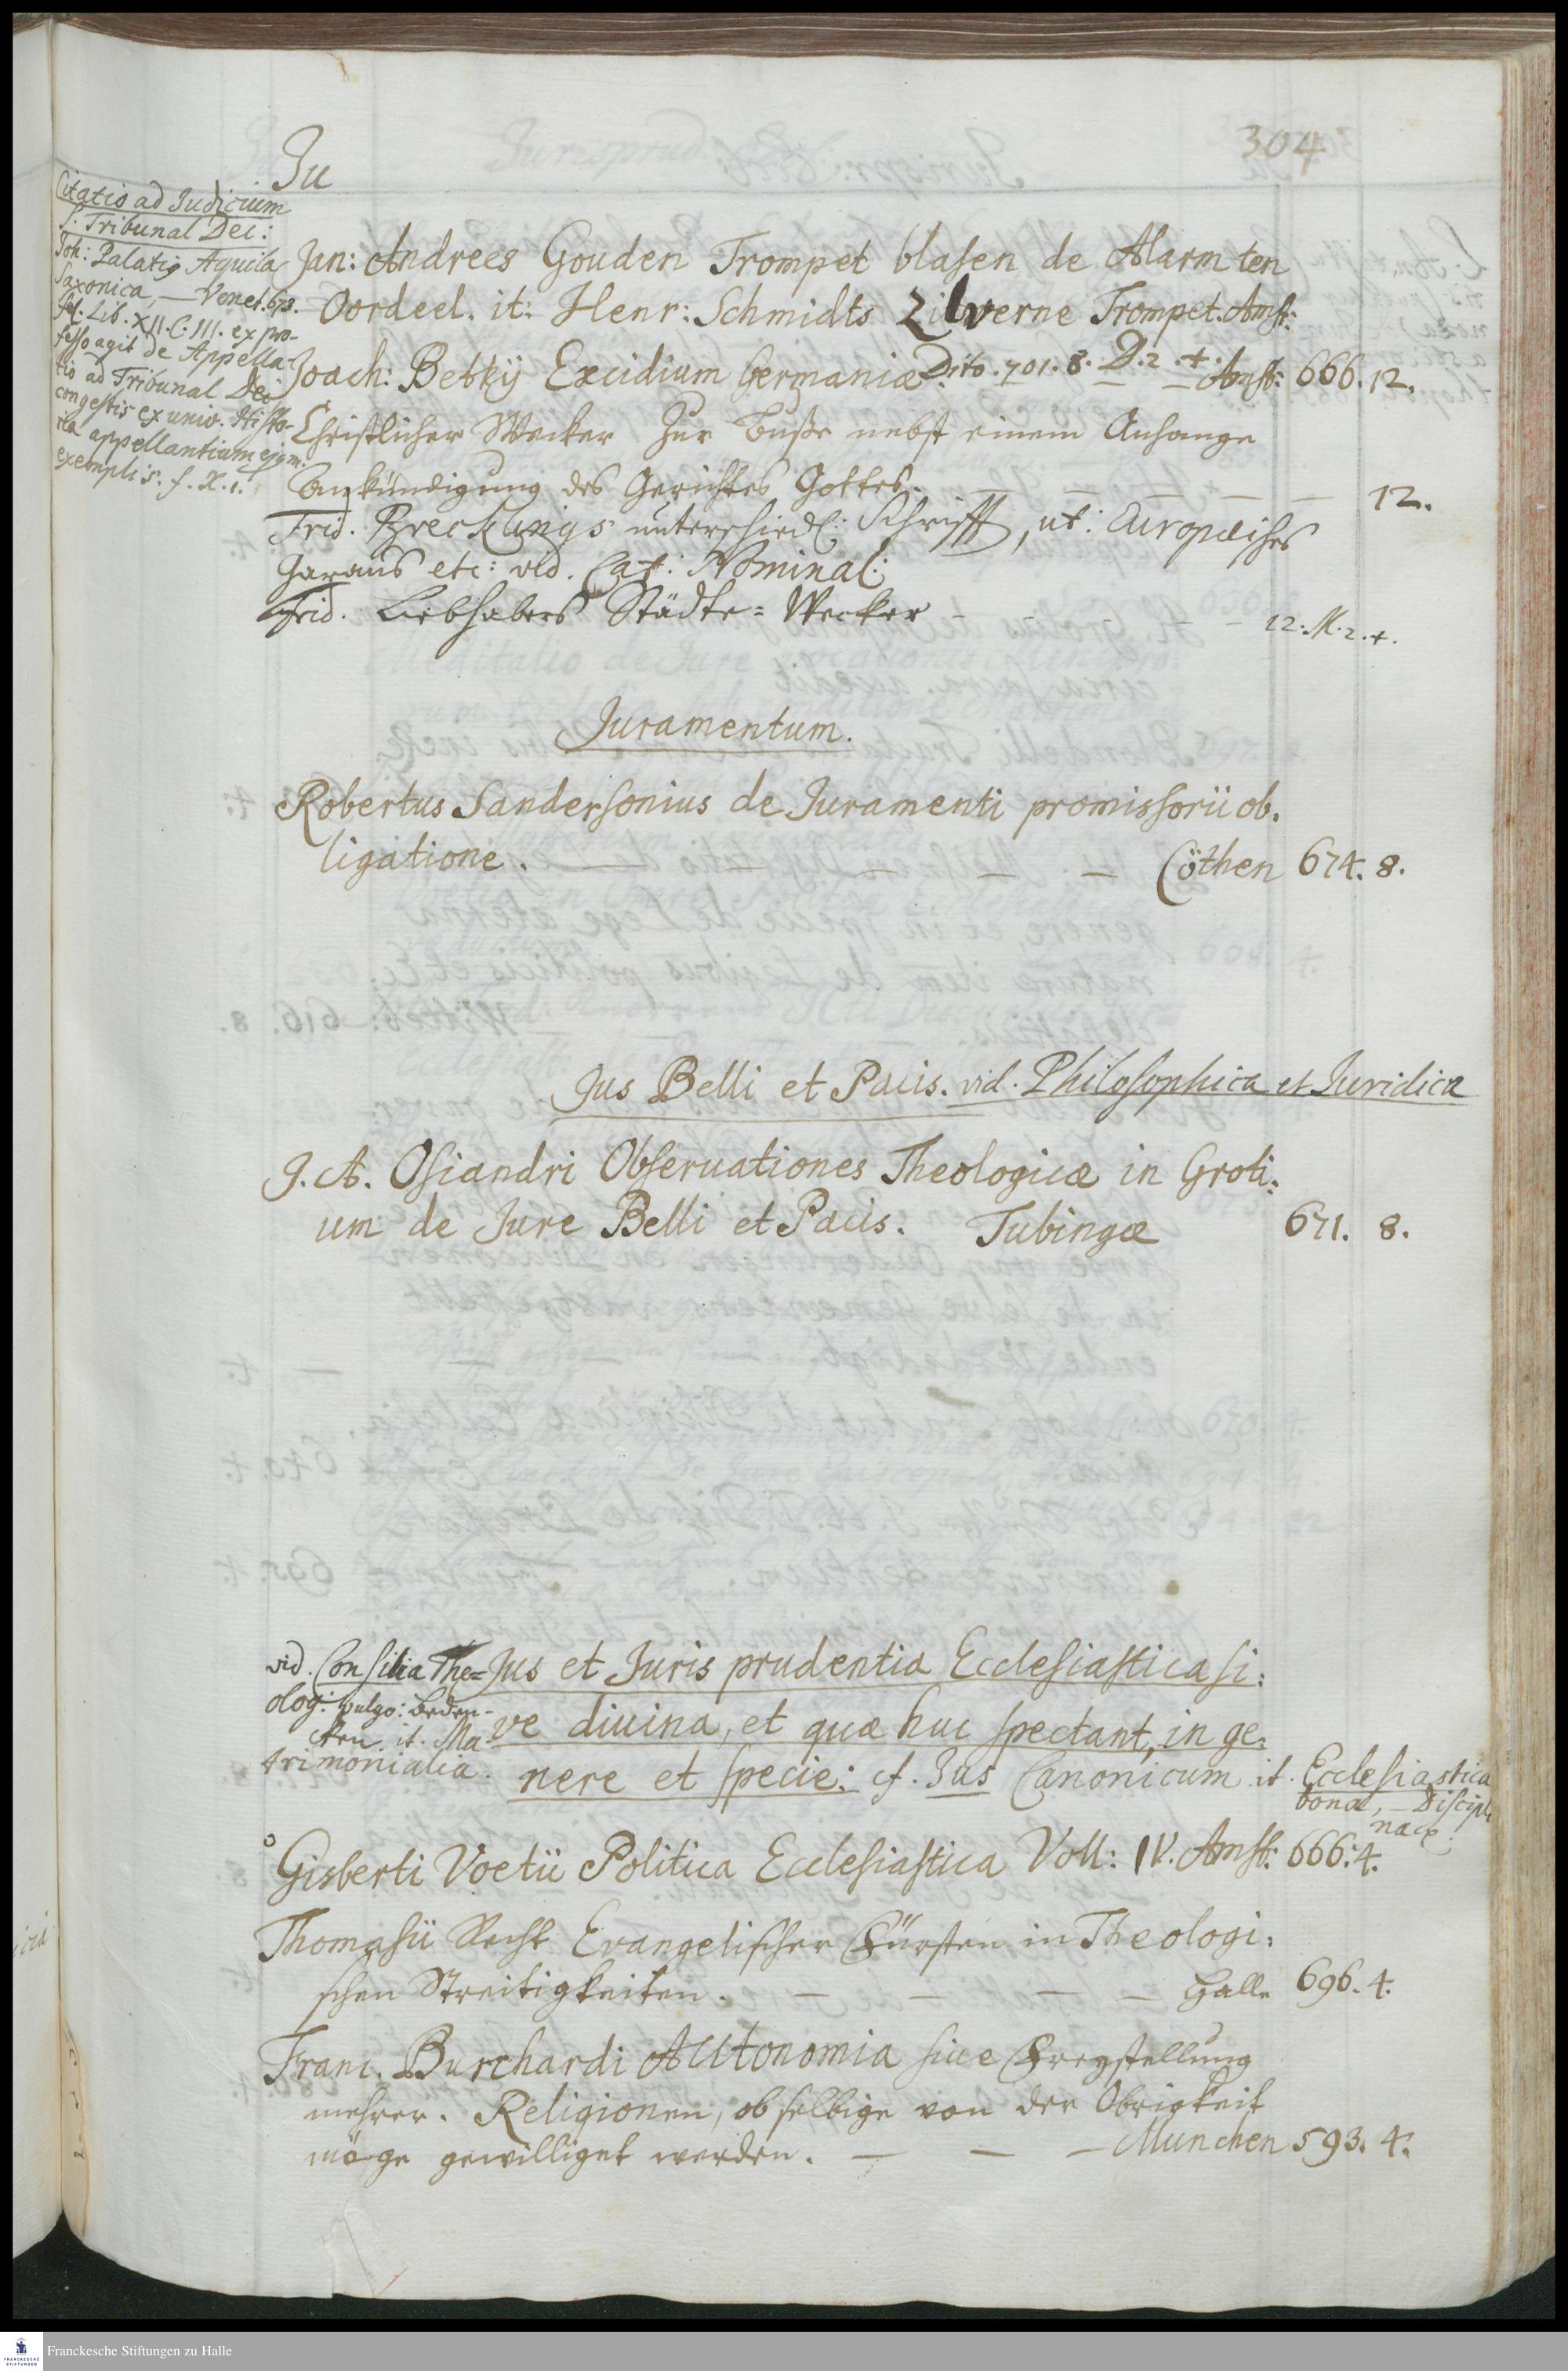 304
Ju
Citatio ad Judicium
s. Tribunal Dei:
Joh: Palatij Aquila
Saxonica, — Venet. 673.
Lib. XII. C. III. ex pro-
fesso agit de Appella-
tio ad Tribunal Dei
congestis ex univ. Histo-
ria appellantium ejusm.
exemplis. f. X. 1.
Jan: Andrees Gouden Trompet blasen de Alarm ten
Oordeel. it: Henr: Schmidts Zilverne Trompet. Amst:
Joach: Betkij Excidium Germaniæ Dito. 701. 8. D. 2. +. — — Amst: 666. 12.
Christlicher Wecker zur Buße nebst einem Anhange
Ankündigung des Gerichtes Gottes. — — — 12.
Frid. Brecklings unterschiedl: Schrifft, ut: Europæisches
Garaus etc: vid. Cat: Nominal:
Frid. Liebhabers Städte=Wecker - - - - - 12. M. 2. +.
Juramentum.
Robertus Sandersonius de Juramenti promissorii ob=
ligatione. — — — — — Cöthen 674. 8.
Jus Belli et Pacis. vid. Philosophica et Juridica
J. A. Osiandri Observationes Theologicæ in Groti=
um de Jure Belli et Pacis. Tubingæ 671. 8.
vid. Consilia The=
olog: vulgo: Beden-
cken it. Ma-
trimonialia.
Jus et Juris prudentia Ecclesiastica si=
ve divina, et quæ huc spectant, in ge=
nere et specie: cf. Jus Canonicum it. Ecclesiastica
bona, — Discipli
nace.
Gisberti Voetii Politica Ecclesiastica Voll: IV. Amst: 666. 4.
Thomasii Recht Evangelischer Fürsten in Theologi=
schen Streitigkeiten. — — — — Halle 696. 4.
Franc. Burchardi AUtonomia sive Freystellung
mehrer. Religionen, ob selbige von der Obrigkeit
möge gewilliget werden. — — — Munchen 593. 4.
Franckesche Stiftungen zu Halle
FRANCKESCHE
STIFTUNGEN